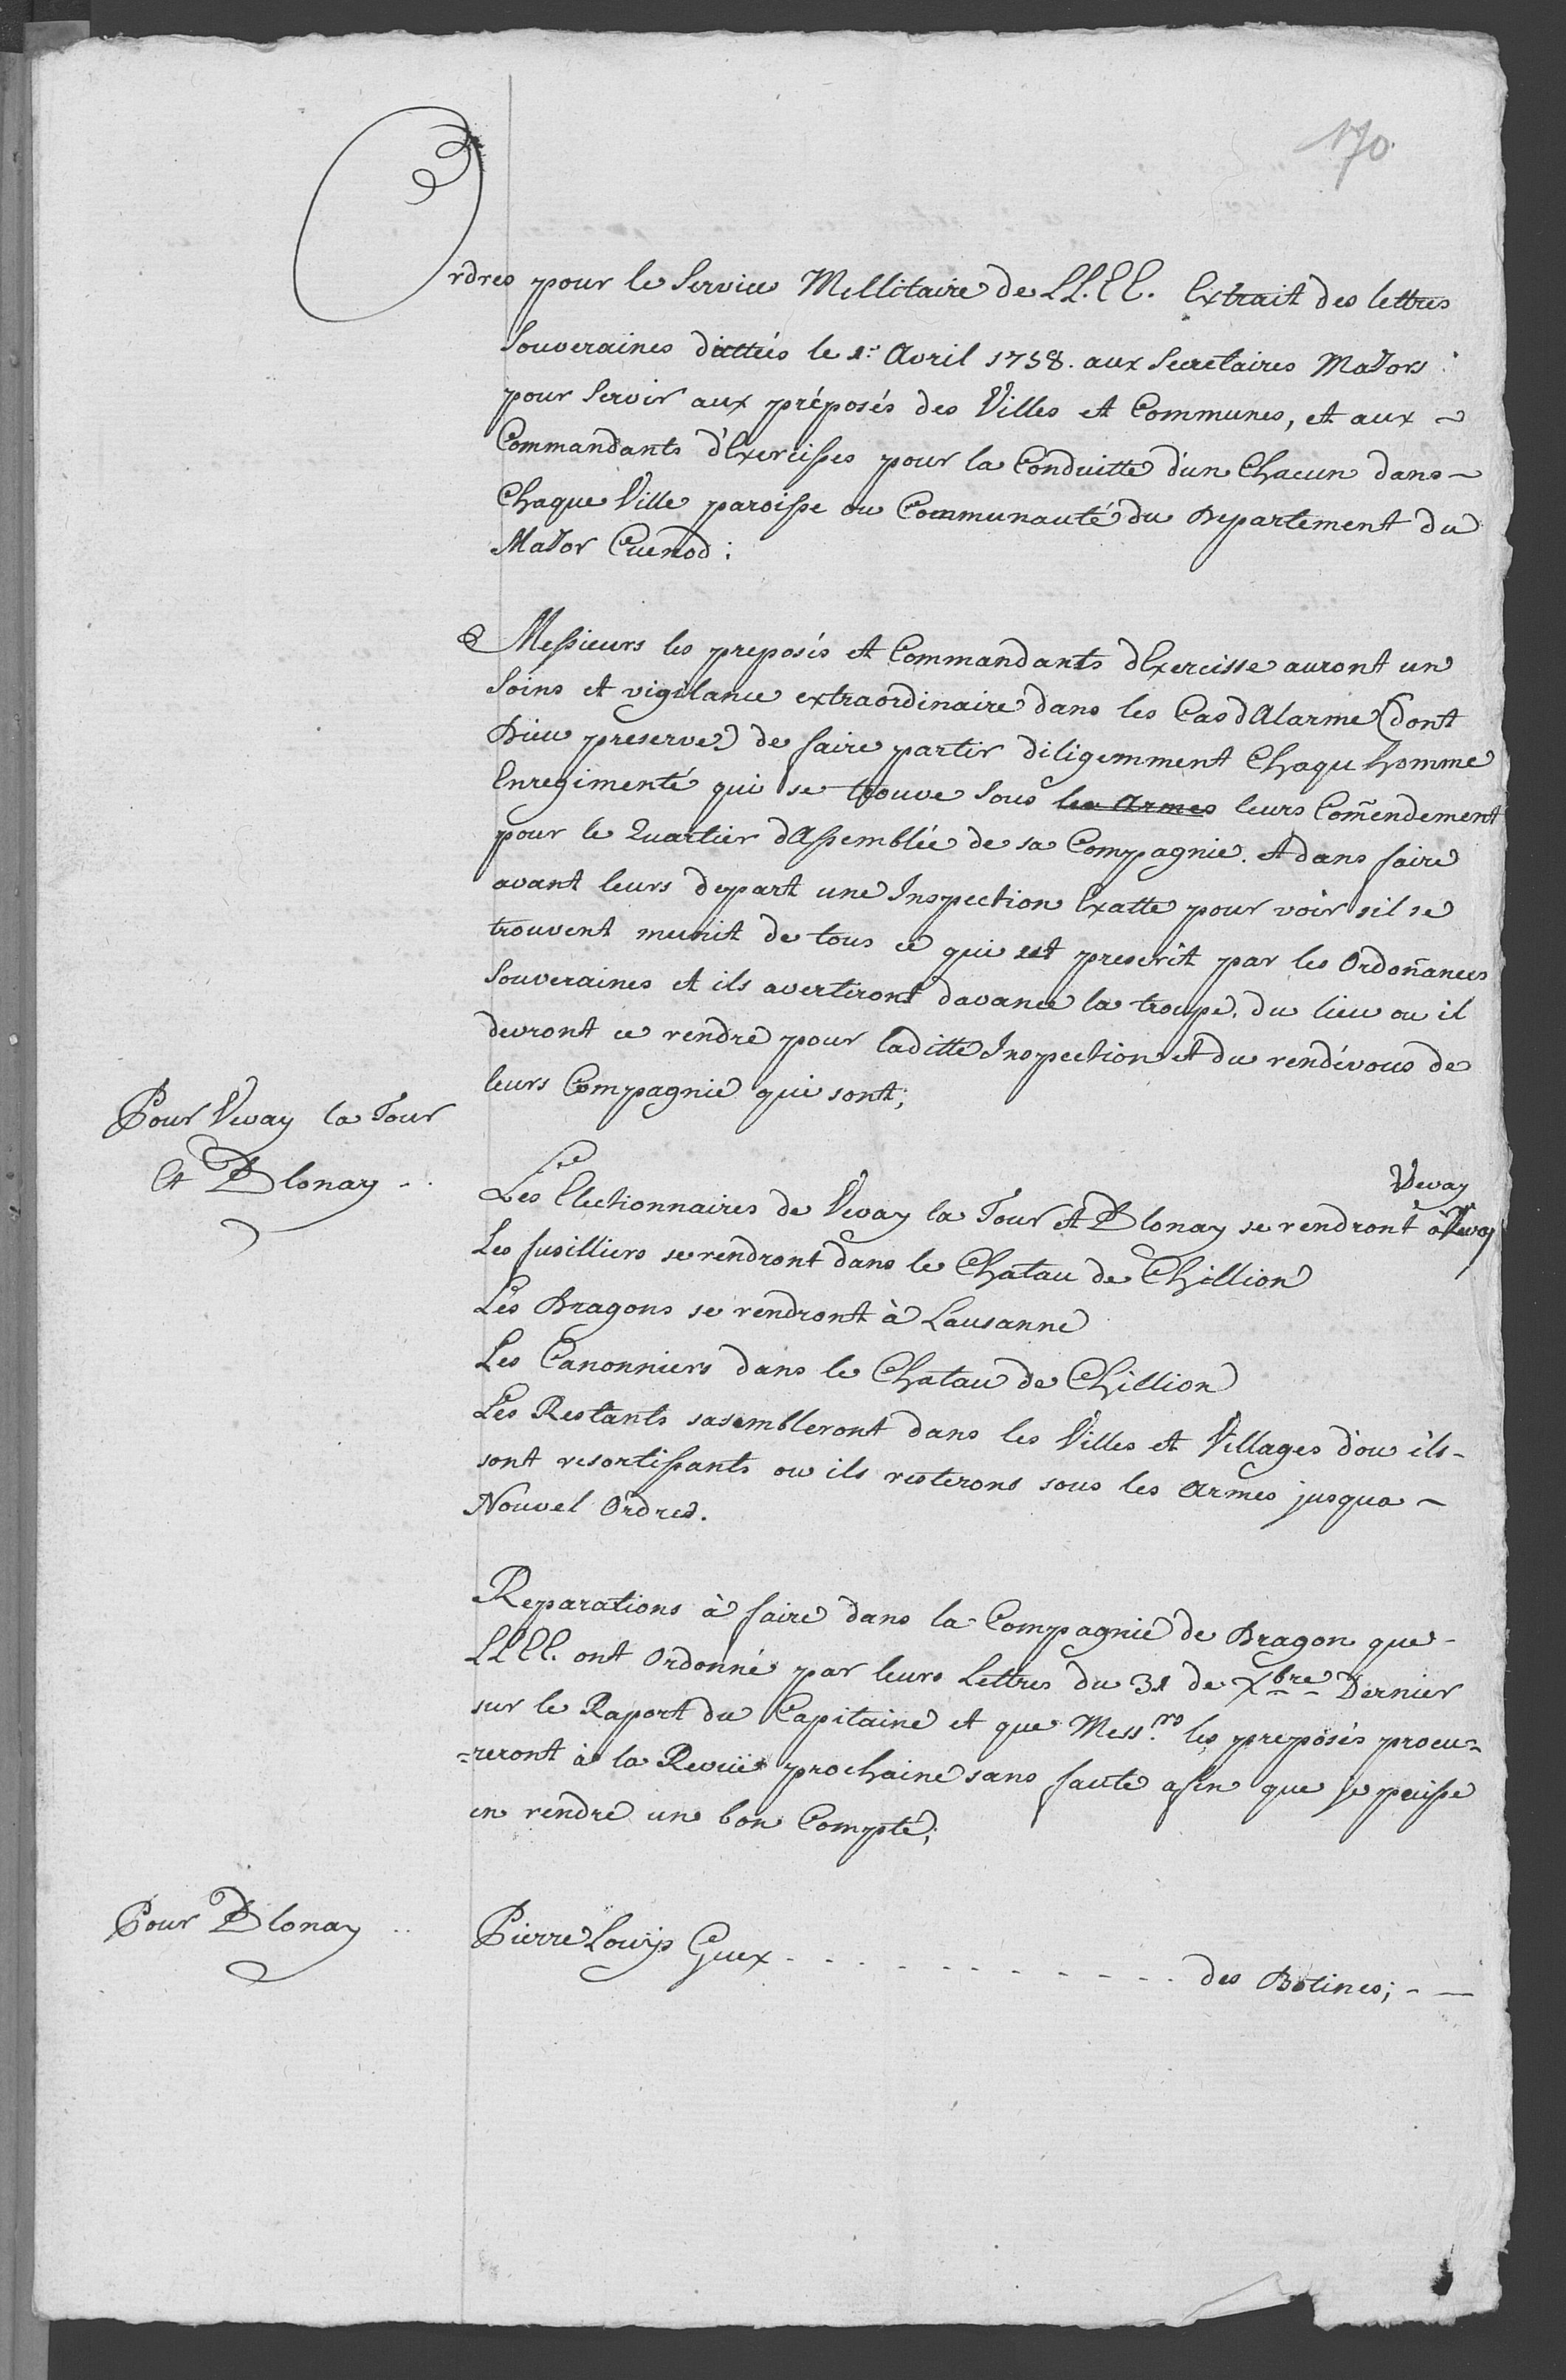 170
Ordres pour le Service Mellitaire de LL.EE. Extrait des lettres
Souveraines dattées le 1.r Avril 1758. aux Secretaires Maĵors
pour Servir aux préposés des Villes et Communes, et aux ~
Commandants d'Exercisses pour la Conduitte d'un Chacun dans ~
Chaque Ville paroisse ou Communauté du Departement du
Major Cuenod:
Messieurs les preposés et Commandants dExercisse auront un
Soins et vigilance extraordinaire dans les Cas dAlarme (dont
Dieu preserve) de faire partir diligemment Chaqu homme
Enregimenté qui se trouve Sous les Armes leurs Com̃endement
pour le Quartier dAssemblée de sa Compagnie. et dans faire
avant leurs depart une Inspection Exatte pour voir sil se
trouvent munit de tous ce qui est prescrit par les Ordoñances
Souveraines et ils avertiront davance la troupe, du lieu ou il
devront ce rendre pour laditte Inspection et du rendévous de
leurs Compagnie qui sont;
Pour Vevay la Tour
et Blonay
Les Electionnaires de Vevay la Tour et Blonay se rendront à Vevay
Vevay
Les fusilliers se rendront dans le Chatau de Chillion
Les Dragons se rendront à Lausanne
Les Canonniers dans le Chatau de Chillion
Les Restants sasembleront dans les Villes et Villages d'ou ils -
sont resortissants ou ils resterons sous les Armes jusqua ~
Nouvel Ordres.
Reparations à faire dans la Compagnie de Dragon que -
LLEE. ont Ordonné par leurs Lettres du 31 de Xbre Dernier
sur le Raport du Capitaine et que Mess.rs les preposés procu=
=reront à la Revüe prochaine sans faute afin que je puisse
en rendre un bon Compte;
Pour Blonay
Pierre Louÿs Guex - - - - - - - - - - - - des Botines; - —